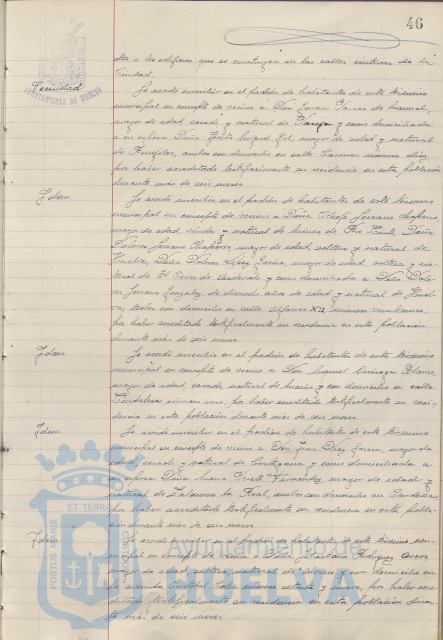 46
dos a los edificios que se construyan en las calles céntricas de la
Ciudad.
Vecindad
AYUNTAMIENTO DE HUELVA
Se acordó inscribir en el padrón de habitantes de este término
municipal en concepto de vecino a Don
mayor de edad, casado y natural de y como domiciliada
a su esposa Doña Gil, mayor de edad y natural
de ambos con domicilio en calle número diez,
por haber acreditado testificalmente su residencia en esta población
durante más de seis meses.
Idem
Se acordó inscribir en el padrón de habitantes de este término
municipal en concepto de vecinos a Doña Serrano Chaparro,
mayor de edad, viuda, y natural de Minas de Rio Tinto, Doña
Dolores Serrano Chaparro, mayor de edad, soltera y natural de
Huelva, Doña Dolores López García, mayor de edad, soltera y na-
tural de El Cerro de Andévalo y como domiciliada a Doña Dolo-
res Serrano González, de dieciocho años de edad y natural de Huel-
va, todos con domicilio en calle Alfonso XII número
por haber acreditado testificalmente su residencia en esta población
durante más de seis meses.
Idem
Se acordó inscribir en el padrón de habitantes de este término
municipal en concepto de vecino a Don Manuel Blanco,
mayor de edad, casado, natural de y con domicilio en calle
número uno, por haber acreditado testificalmente su resi-
dencia en esta población durante más de seis meses.
Idem
Se acordó inscribir en el padrón de habitantes de este término
municipal en concepto de vecino a Don Juan Díaz García, mayor de
edad, casado y natural de Cortegana y como domiciliada a
su esposa Doña María Prieto Fernández, mayor de edad y
natural de Zalamea la Real, ambos con domicilio en
por haber acreditado testificalmente su residencia en esta pobla-
ción durante más de seis meses.
Idem
Se acordó inscribir en el padrón de habitantes de este término mu-
nicipal en concepto de vecina a Doña Rodríguez
mayor de edad, soltera, natural de y con domicilio en
la avenida Cristóbal Colón número ochenta y nueve, por haber acre-
ditado testificalmente su residencia en esta población duran-
te más de seis meses.
PORTUS MARIS ET TERRAE
Ayuntamiento de
HUELVA